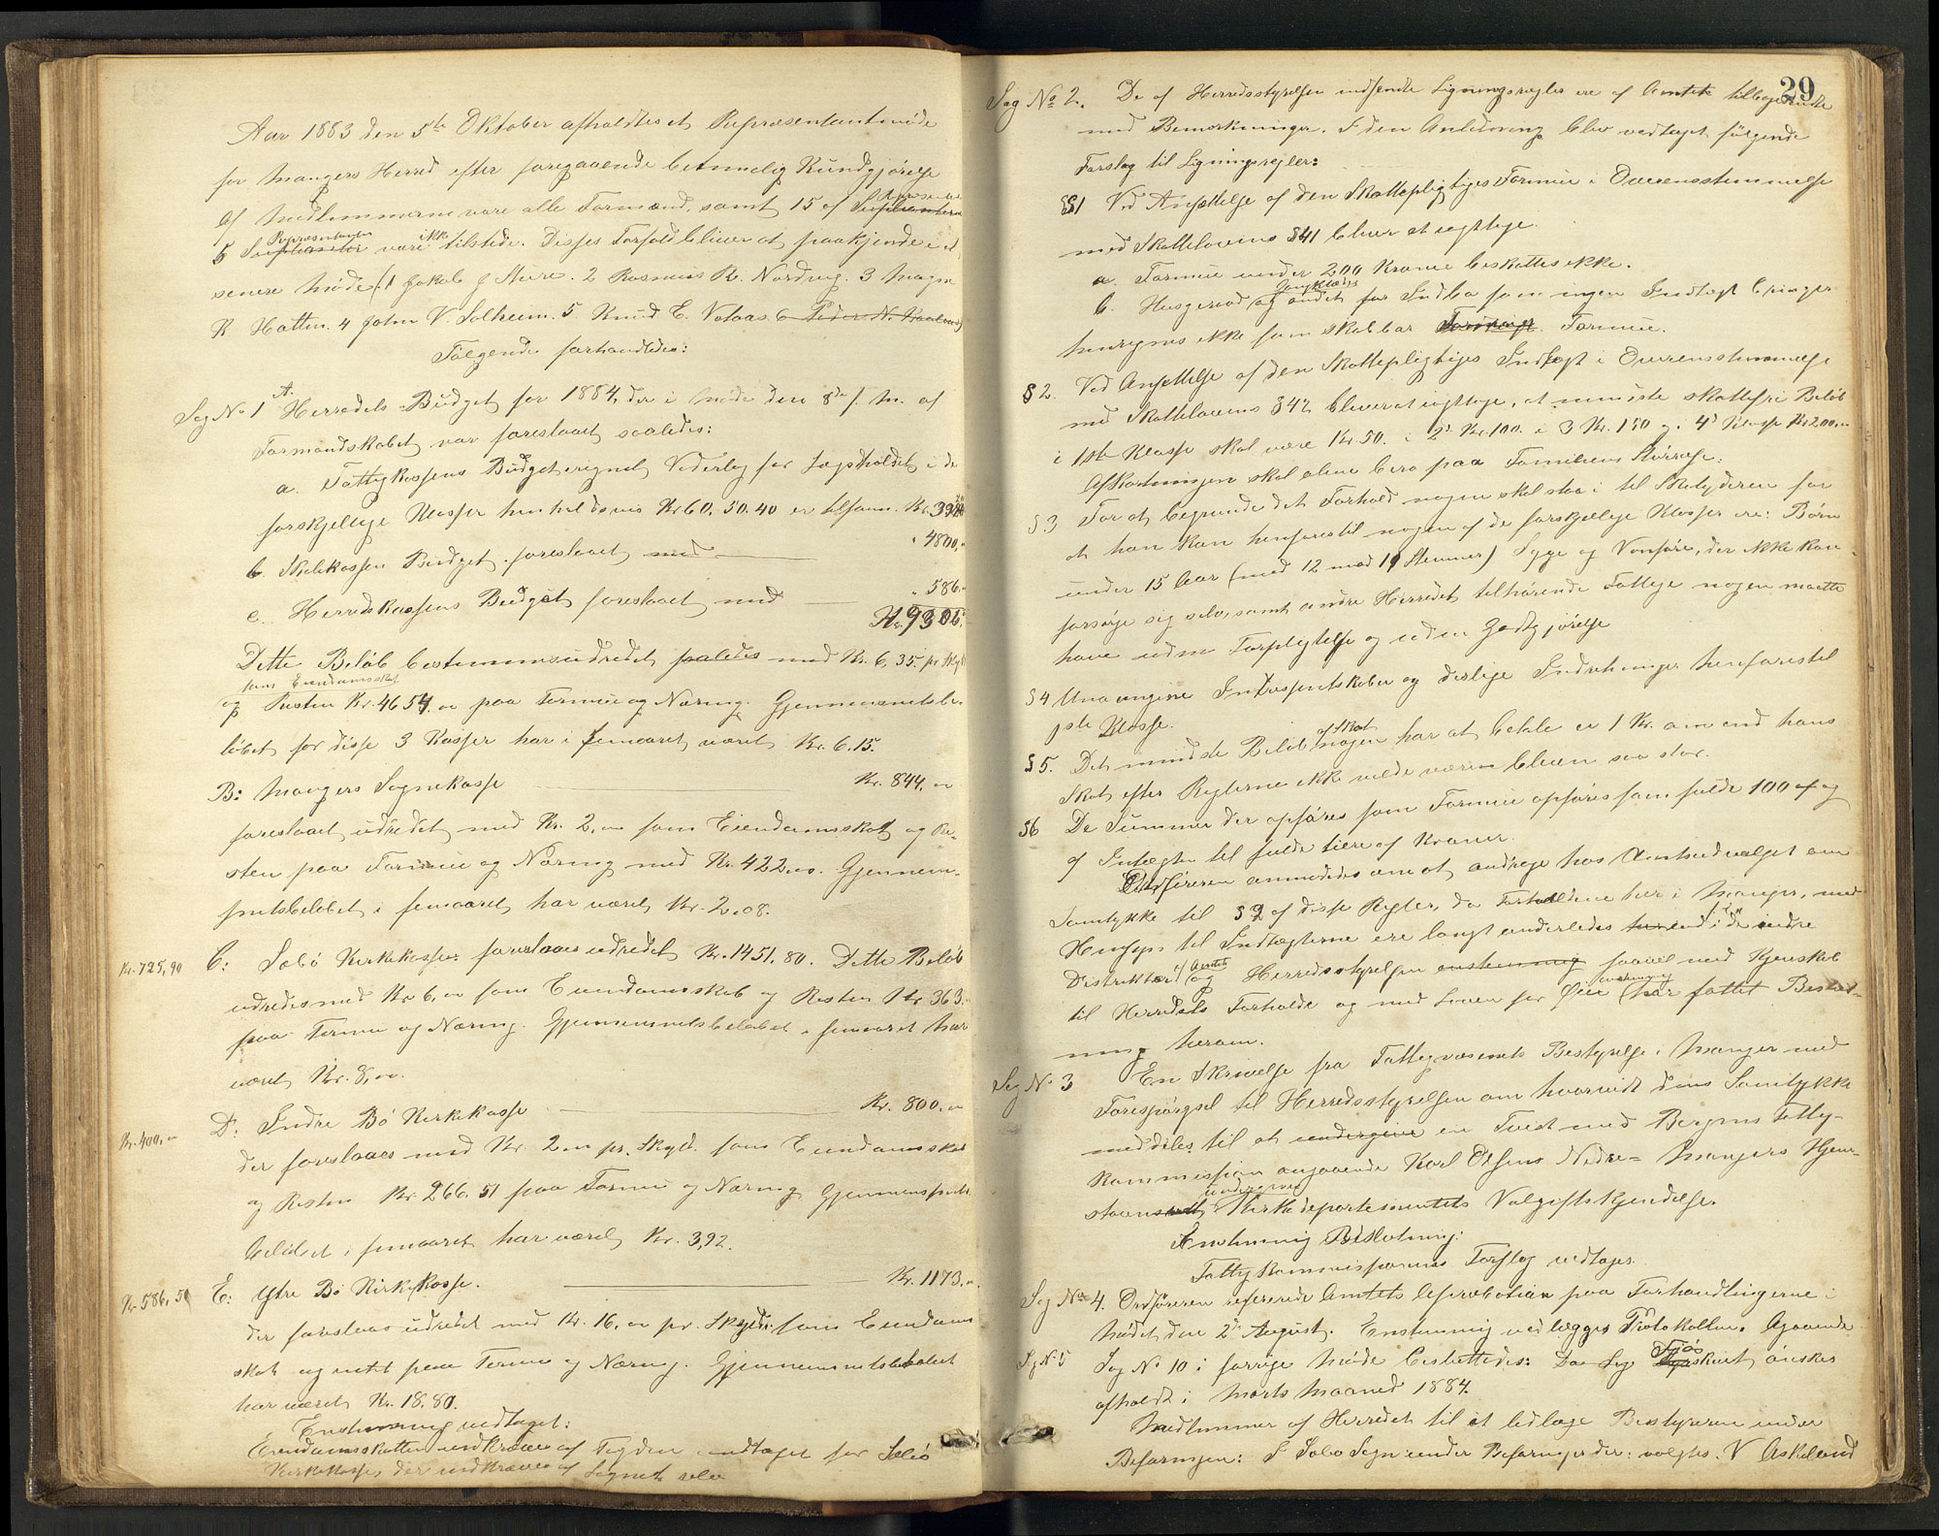 Aar 1883 den 5te Oktober afholdtes et Repræsentantmøde
for Mangers Herred efter foregaaende betimelig Kundgjørelse
Af Medlemmerne vare alle Formænd, samt 15 af Repræsentan
5 Repræsentanter vare ikke tilstede. Disses Forfald bliver at paakjende i et
senere Møde (1 Jakob J Aure. 2 Rasmus R. Nordvig. 3 Magne
R Hatten. 4 John V. Solheim. 5. Knud E. Volaas
Følgende forhandledes:
Sag No 1 A. Herredets Budget for 1884, der i Møde den 8de f. M. af
Formandskabet var foreslaaet saaledes:
a. Fattigkassens Budget iregnet Vederlag for Lægsholdet i de
forskjellige Klasser henholdsvis Kr 60. 50. 40 er tilsam. Kr.
b. Skolekassens Budget foreslaaet med " 4800,00
c. Herredskassens Budget foreslaaet med " 586.
Kr. 9306
Dette Beløb bestemmes udredet saaledes med Kr. 6,35. pr Skyld
som Eiendomsskat
og Resten Kr. 4654.00 paa Formue og Næring. Gjennemsnitsbe-
løbet for disse 3 Kasser har i femaaret været Kr. 6.15.
B: Mangers Sognekasse Kr. 844,00
foreslaaet udredet med Kr. 2,00 som Eiendomsskat og Re-
sten paa Formue og Næring med Kr. 422,00. Gjennem-
snitsbeløbet i femaaret har været Kr. 2,08.
Kr. 725,90 C: Sæbø Kirkekasse foreslaaes udredet Kr. 1451,80. Dette Beløb
udredes med Kr 6,00 som Eiendomsskat og Resten Kr 363
paa Formue og Næring. Gjennemsnitsbeløbet i femaaret har
været Kr. 8,00.
Kr. 400,00 D: Indre Bø Kirkekasse Kr. 800,00
der foreslaaes med Kr. 2,00 pr. Skyld. som Eiendomsskat
og Resten Kr 266.51 paa Formue og Næring Gjennemsnits
beløbet i femaaret har været Kr. 3,92.
Kr 586,50 E: Ytre Bø Kirkekasse. Kr. 1173,00
der foreslaaes udredet med Kr. 16,00 pr. Skyld som Eiendoms
skat og intet paa Formue og Næring. Gjennemsnitsbeløbet
har været Kr. 18.80.
Enstemmig vedtaget:
Eiendomsskatten indkræves af Fogden undtaget for Sæbø
Kirkekasse, der indkræves af Sognet selv
29
Sag No 2. De af Herredsstyrelsen indsendte Ligningsregler ere af Amtet tilbagesendte
med Bemærkninger. I den Anledning blev vedtaget følgende
Forslag til Ligningsregler:
§1 Ved Ansættelse af den Skattepligtiges Formue i Overensstemmelse
med Skattelovens §41 bliver at iagttage.
a. Formue under 200 Kroner beskattes ikke.
b. Husgeraad Gangklæder og andet før Indbo som ingen Indtægt bringer
henregnes ikke som skatbar Formue.
§2. Ved Ansættelse af den Skattepligtiges Indtægt i Overensstemmelse
med Skattelovens §42 bliver at iagttage, at mindste skattefri Beløb
i 1ste Klasse skal være Kr. 50. i 2den Kr. 100. i 3 Kr. 150 og 4de Klasse Kr 200,00
Afkortningen skal alene bero paa Familiens Størrelse.
§3 For at begrunde det Forhold nogen skal staa i til Skatyderen for
at han kan henføres til nogen af de forskjellige Klasser ere: Børn
under 15 Aar (med 12 mod 19 Stemmer) Syge og Vanføre, der ikke kan
forsørge sig selv, samt andre Herredet tilhørende Fattige nogen maatte
have uden Forpligtelse og uden Godtgjørelse
§4 Unavngivne Interessentskaber og deslige Indretninger henføres til
1ste Klasse.
§5. Det mindste Beløb af Skat nogen har at betale er 1 Kr. om end hans
Skat efter Reglerne ikke vilde være bleven saa stor.
§6 De Summer der opføres som Formue opføres som fulde 100 af og
af Indtægter til fulde tiere af Kroner.
Ordføreren anmodedes om at andrage hos Amtsudvalget om
Samtykke til §2 af disse Regler, da Forholdene her i Manger, med
Hensyn til Indtægterne ere langt anderledes end i de indre
Distrikter i Amtet og Herredsstyrelsen saavel med Kjendskab
til Herredets Forholde og med Loven for Øie enstemmig har fattet Beslut-
ning herom.
Sag No 3 En Skrivelse fra Fattigvæsenets Bestyrelse i Manger med
Forespørgsel til Herredsstyrelsen om hvorvidt dens Samtykke
meddeles til at en Tvist med Bergens Fattig-
kommission angaaende Karl Olsens Nedre-Mangers Hjem-
stavnsret undergives Kirkedepartementets Voldgiftskjendelse.
Enstemmig Beslutning:
Fattigkommissionens Forslag vedtages.
Sag No 4. Ordføreren refererede Amtets Approbation paa Forhandlingerne i
Mødet den 2den August. Enstemmig vedlægges Protokollen. Agaaende
Sag No 5 Sag No 10 i forrige Møde besluttedes: Da Seg ønskes
afholdt i Marts Maaned 1884.
Medlemmer af Herredet til at ledsage Bestyreren under
Befaringen: I Sæbø Sogn under Befaringer der: valgtes. N Askeland